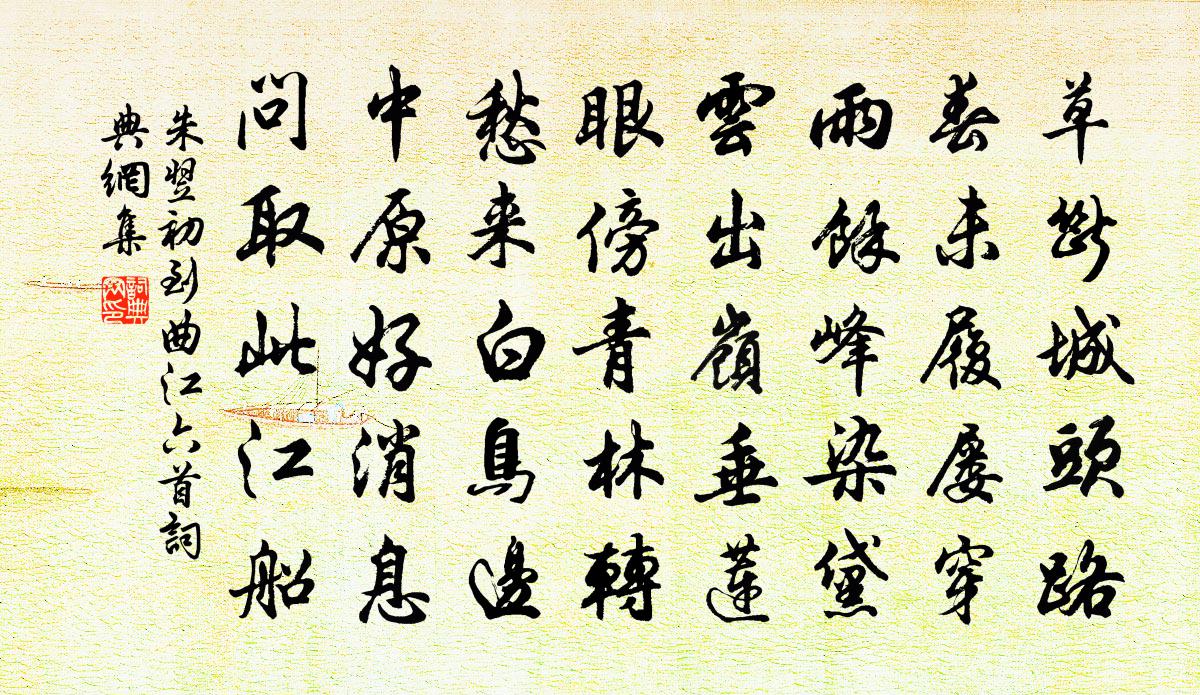 草斷城頭路
春未履屡穿
雨餘峰染黛
雲出嶺垂蓮
眼傍青林轉
愁来白鳥邊
中原好消息
問取此江船
朱翌初到曲江六首詞
典網集
詞典網印